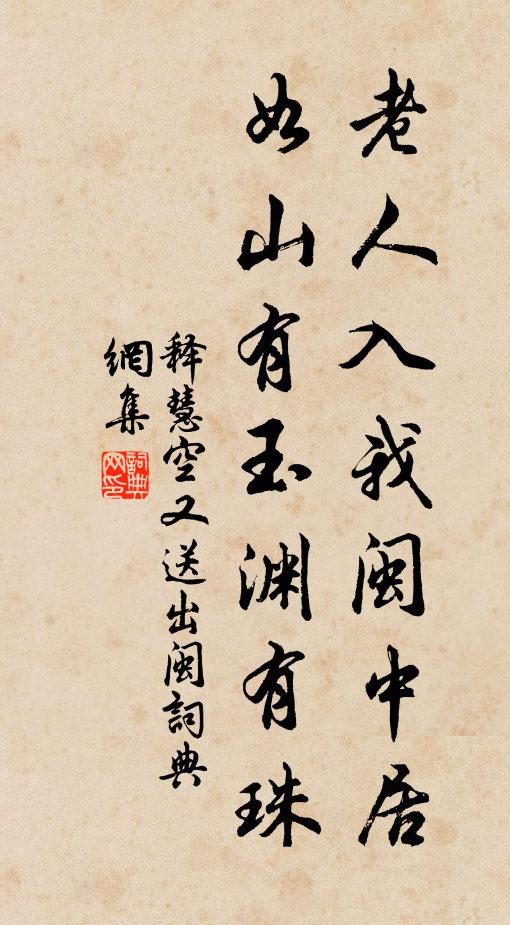 老人入我閩中居
如山有玉渊有珠
释慧空又送出閩詞典
網集
詞典
网印